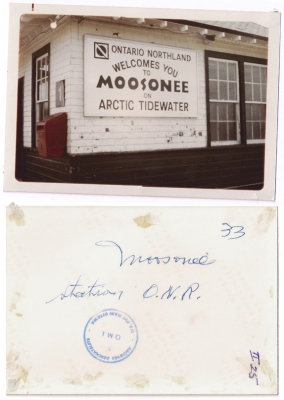 ONTARIO NORTHLAND
WELCOMES YOU
TO
MOOSONEE
ON
ARCTIC TIDEWATER
33
Moosonee
station O.N.R.
O.M.I.
II-25